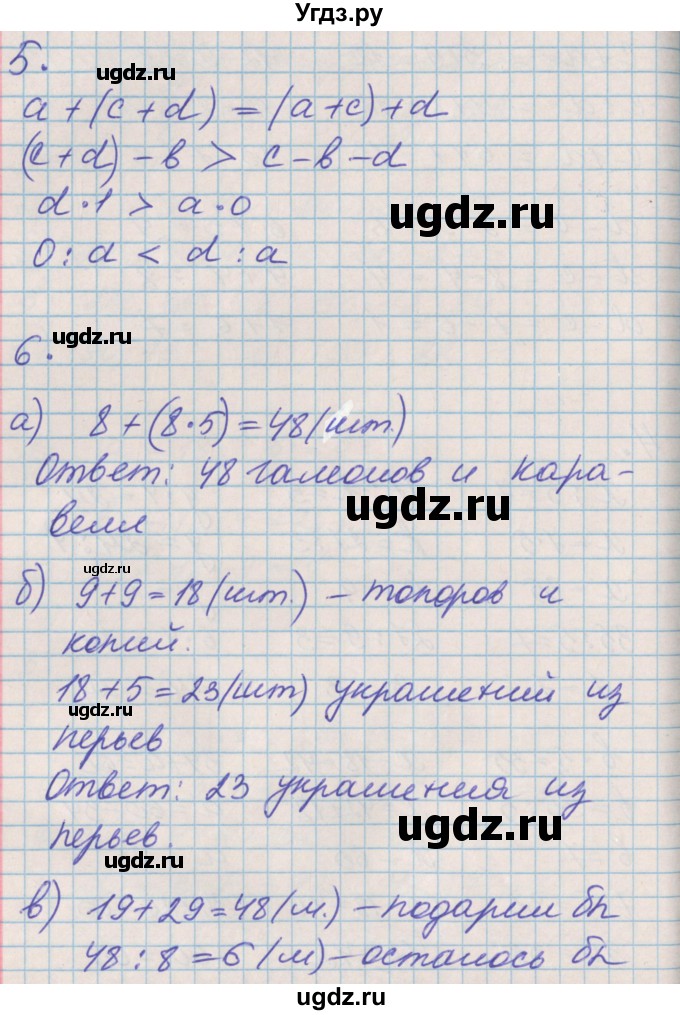 Угдз.ру
5.
ugdz.ru
a + (c + d) = (a + c) + d
(c + d) - в > c - в - d
d · 1 > a · 0
ugdz.ru
0 : d < d : a
ugdz.ru
6.
а) 8 + (8 · 5) = 48 (шт.)
Ответ: 48 галеонов и кара-
ugdz.ru
велл
ugdz.ru
б) 9 + 9 = 18 (шт.) – топоров и
копий.
18 + 5 = 23 (шт) украшений из
ugdz.ru
перьев
Ответ: 23 украшения из
ugdz.ru
перьев.
ugdz.ru
в) 19 + 29 = 48 (м.) – подарил бы
48 : 8 = 6 (м) – осталось бы
ugdz.ru